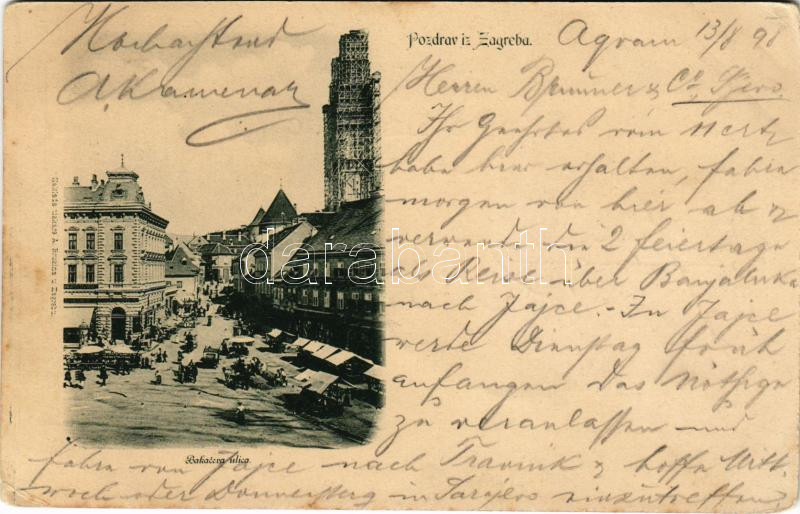 Hochachtend
A. Kamenar
Pozdrav iz Zagreba.
Agram 13/8 98
Herren Brunner & Co
Ihr Geehrtes vom 11 crt
habe hier erhalten, fahre
morgen von hier ab &
verwende die 2 Feiertage
als Reise über Banjaluka
nach Jajce. - In Jajce
werde Dienstag früh
anfangen das Nöthige
zu veranlassen und
fahre von Jajce nach Travnik & hoffe Mitt-
woch oder Donnerstag in Sarajevo einzutreffen
Bakačeva ulica.
darabanth